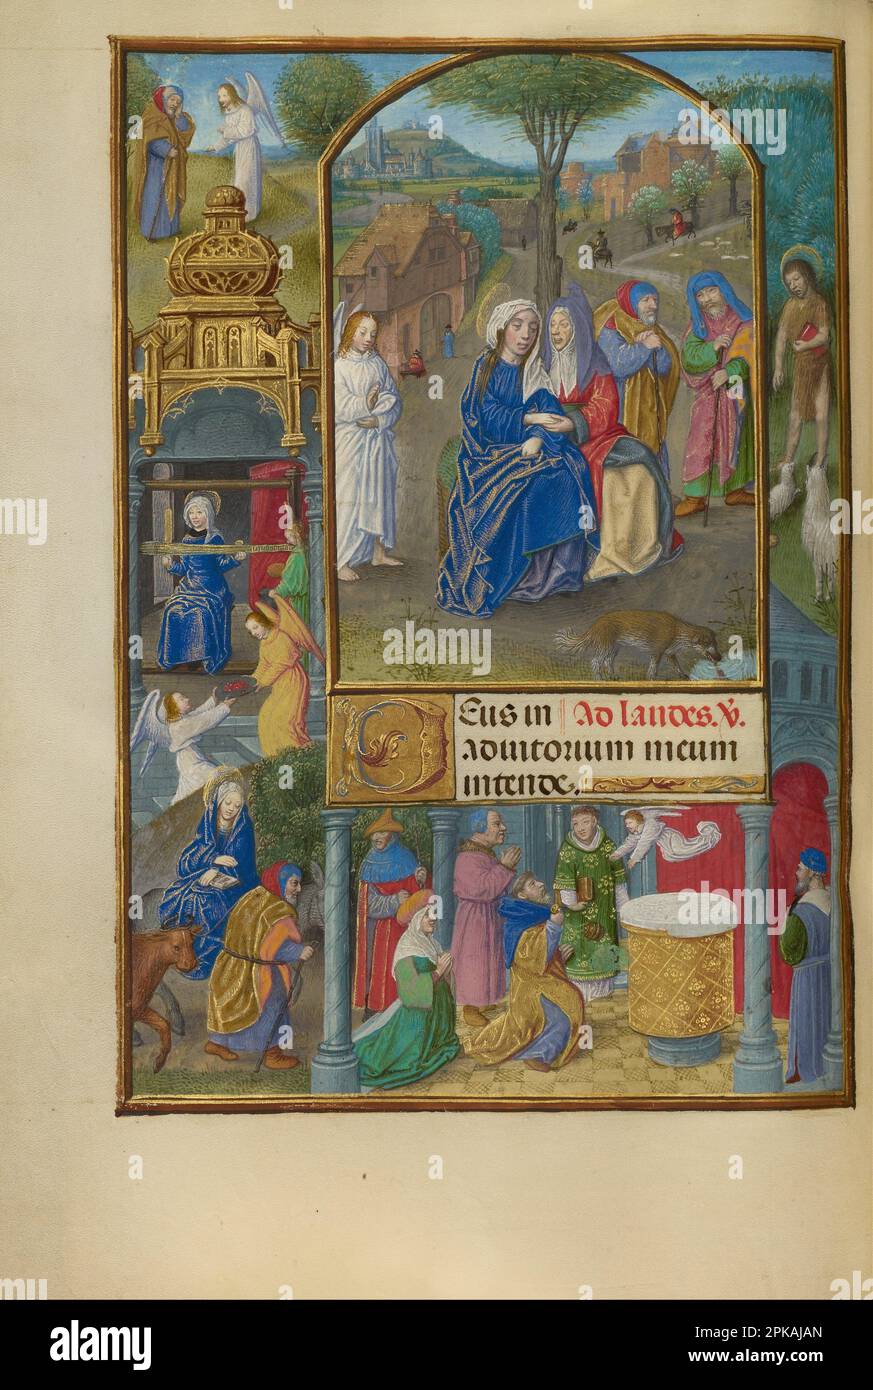 Deus in Ad laudes. V.
adiutorium meum
intende.
alamy
Image ID: 2PKAJAN
www.alamy.com